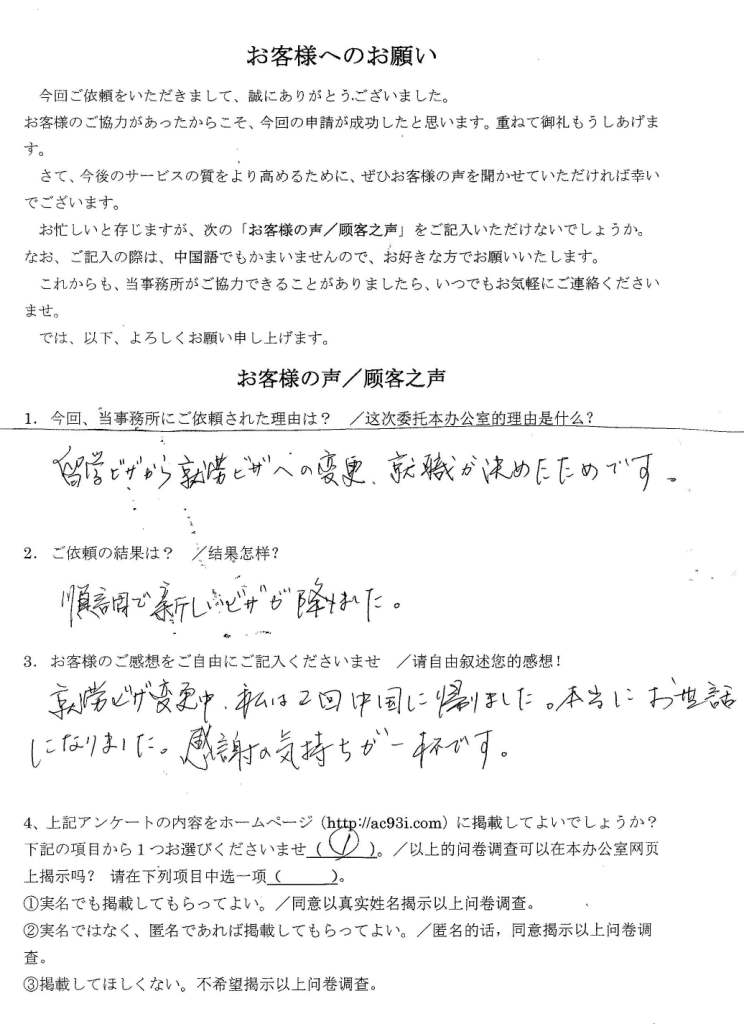 お客様へのお願い
今回ご依頼をいただきまして、誠にありがとうございました。
お客様のご協力があったからこそ、今回の申請が成功したと思います。重ねて御礼もうしあげま
す。
さて、今後のサービスの質をより高めるために、ぜひお客様の声を聞かせていただければ幸い
でございます。
お忙しいと存じますが、次の「お客様の声／顾客之声」をご記入いただけないでしょうか。
なお、ご記入の際は、中国語でもかまいませんので、お好きな方でお願いいたします。
これからも、当事務所がご協力できることがありましたら、いつでもお気軽にご連絡ください
ませ。
では、以下、よろしくお願い申し上げます。
お客様の声／顾客之声
1．今回、当事務所にご依頼された理由は？　／这次委托本办公室的理由是什么？
留学ビザから就労ビザへの変更、就職が決めたためです。
2．ご依頼の結果は？　／结果怎样？
順調で新しいビザが降りました。
3．お客様のご感想をご自由にご記入くださいませ　／请自由叙述您的感想！
就労ビザ変更中、私は2回中国に帰りました。本当にお世話
になりました。感謝の気持ちが一杯です。
4、上記アンケートの内容をホームページ（http://ac93i.com）に掲載してよいでしょうか？
下記の項目から１つお選びくださいませ（ ① ）。／以上的问卷调查可以在本办公室网页
上揭示吗？ 请在下列项目中选一项（　　）。
①実名でも掲載してもらってよい。／同意以真实姓名揭示以上问卷调查。
②実名ではなく、匿名であれば掲載してもらってよい。／匿名的话，同意揭示以上问卷调
查。
③掲載してほしくない。不希望揭示以上问卷调查。